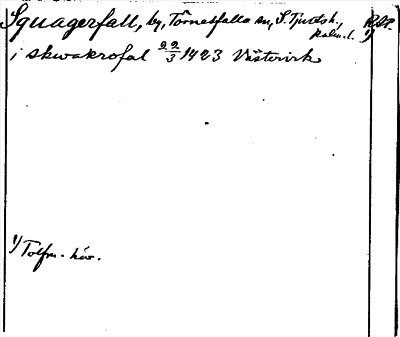 Squagerfall, by, Törnesfalla sn, S. Tjustsh., RAP.
Kalm. l. 1)
i skwakrofal 22/3 1423 Västervik
1) Tolfm. - häv.